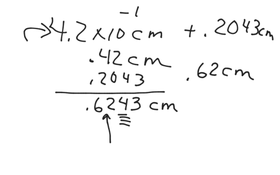 4.2×10⁻¹ cm + .2043cm
.42cm
.2043
.62cm
.6243 cm